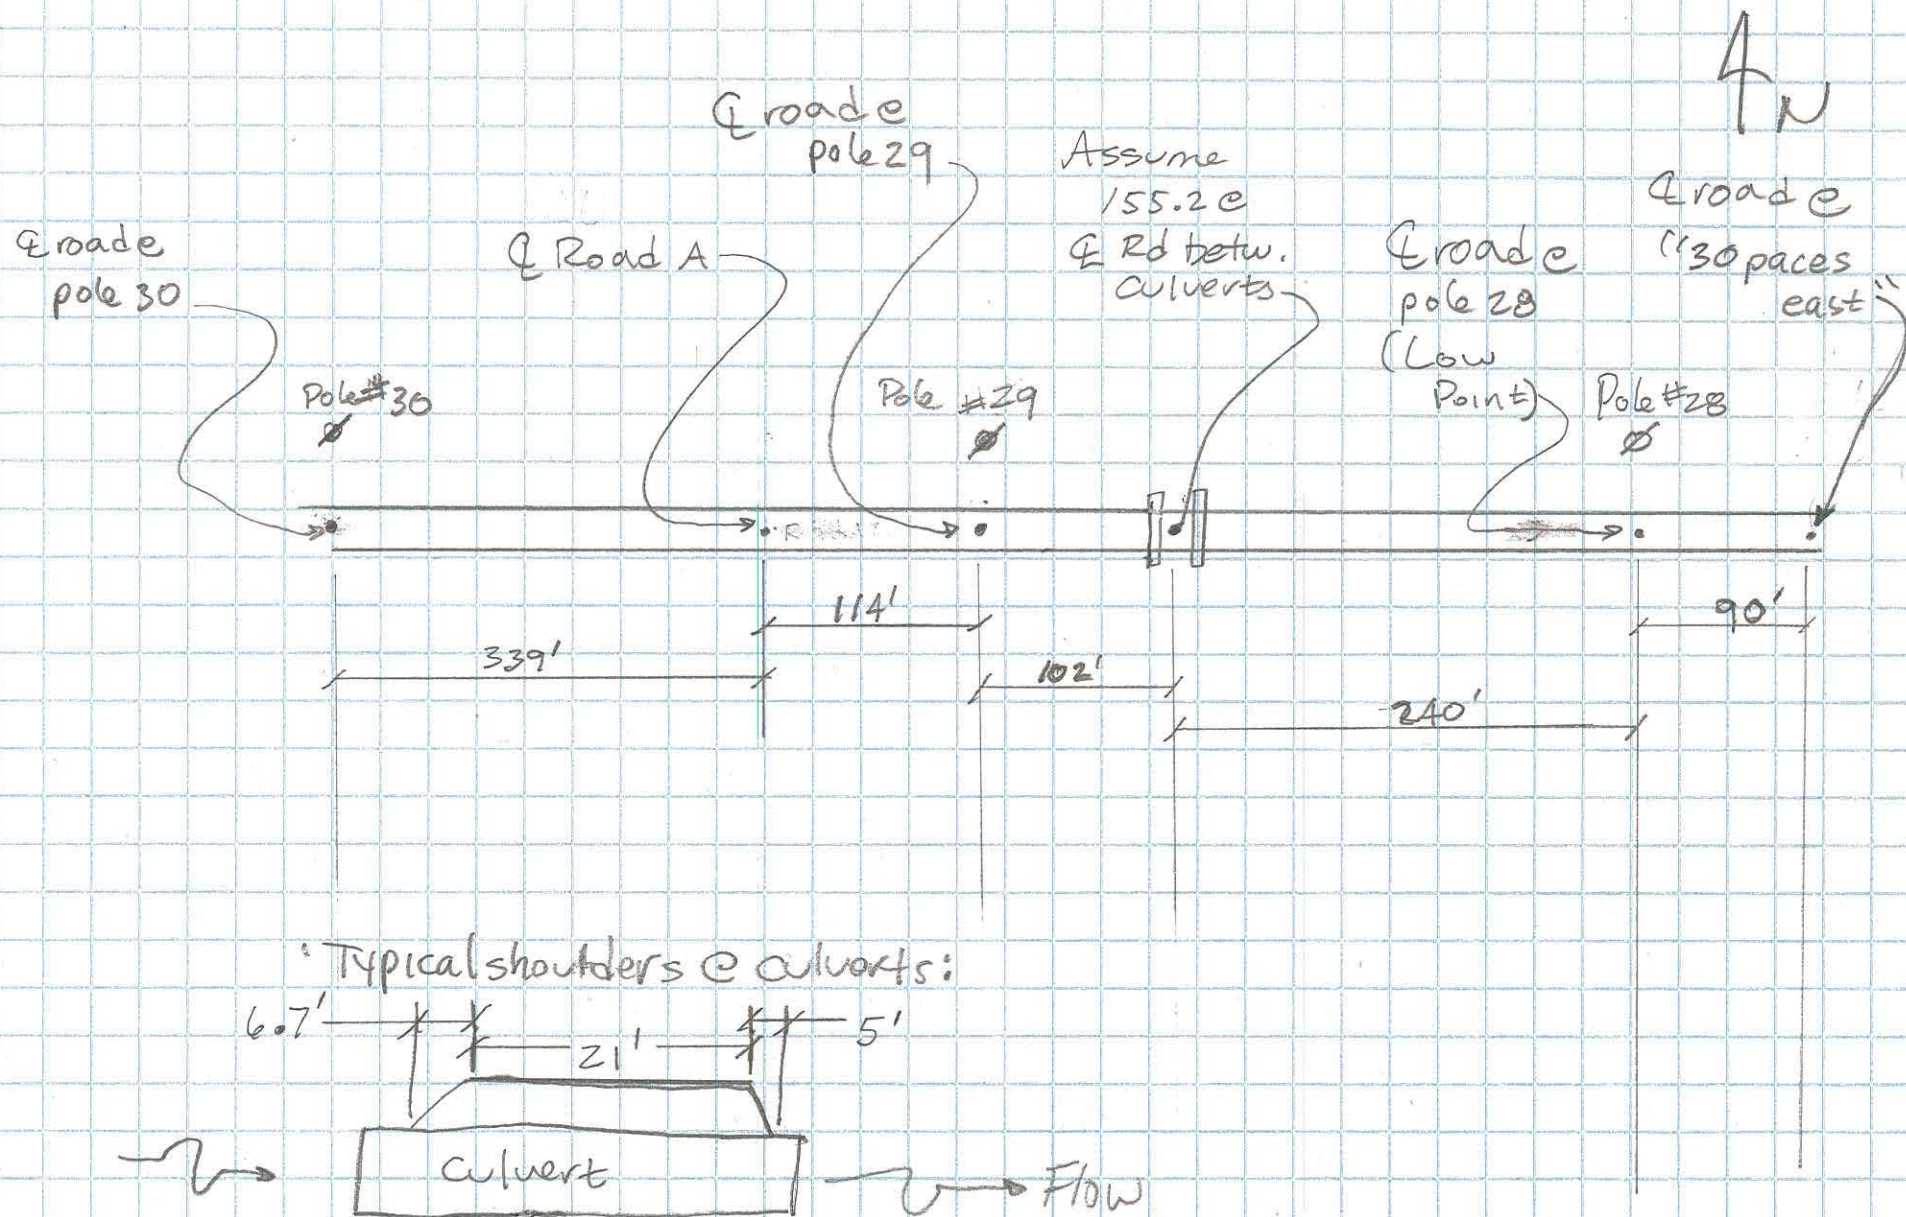 N
℄ road @
pole 29
Assume
155.2 @
℄ Rd betw.
culverts
℄ road @
"30 paces
east"
℄ road @
pole 30
℄ Road A
℄ road @
pole 28
(Low
Point)
Pole #30
Pole #29
Pole #28
114'
90'
339'
102'
240'
Typical shoulders @ culverts:
6.7'
21'
5'
culvert
Flow